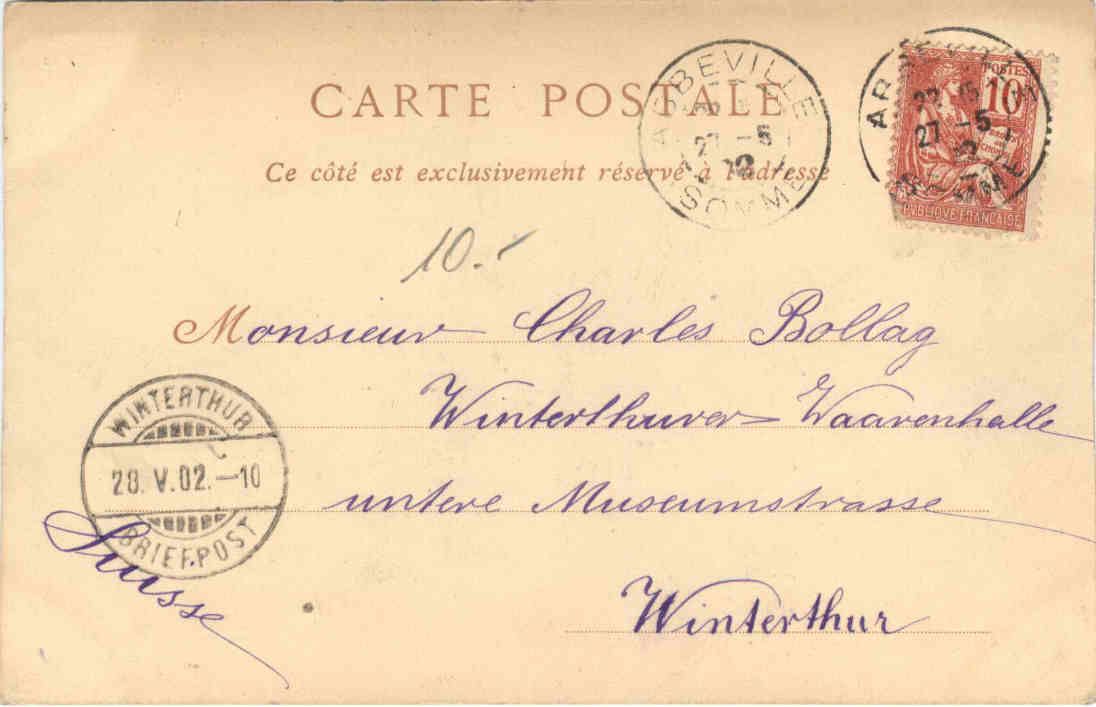 CARTE POSTALE
Ce côté est exclusivement réservé à l'adresse
ABBEVILLE
27 -5
02
SOMME
POSTES
10
27 -5
SOMME
RÉPUBLIQUE FRANÇAISE
10.-
Monsieur Charles Bollag
Winterthurer Waarenhalle
untere Museumstrasse
Winterthur
Suisse
WINTERTHUR
28. V. 02. — 10
BRIEFPOST